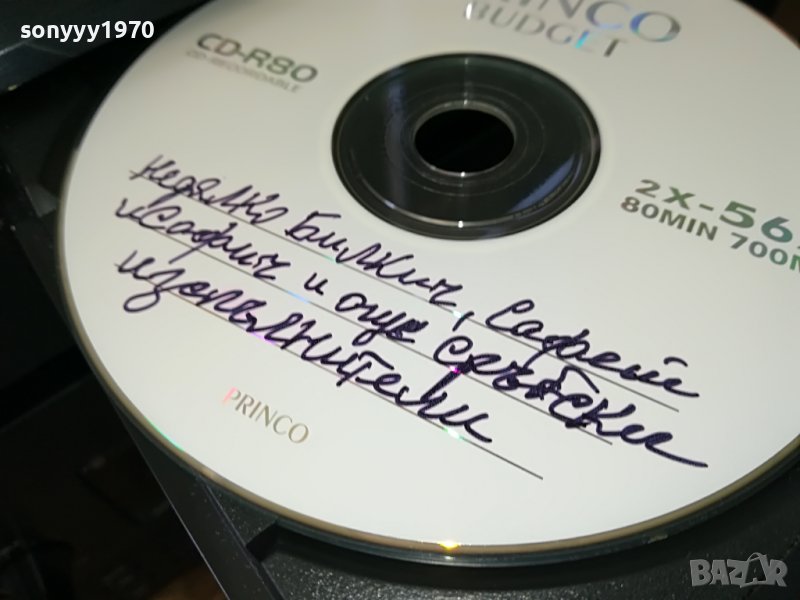 sonyyy1970
PRINCO
BUDGET
CD-R80
CD-RECORDABLE
2X-56
80MIN 700M
Недялко Билкич, Сафет
Исафич и още сръбски
изпълнители
PRINCO
BAZAR